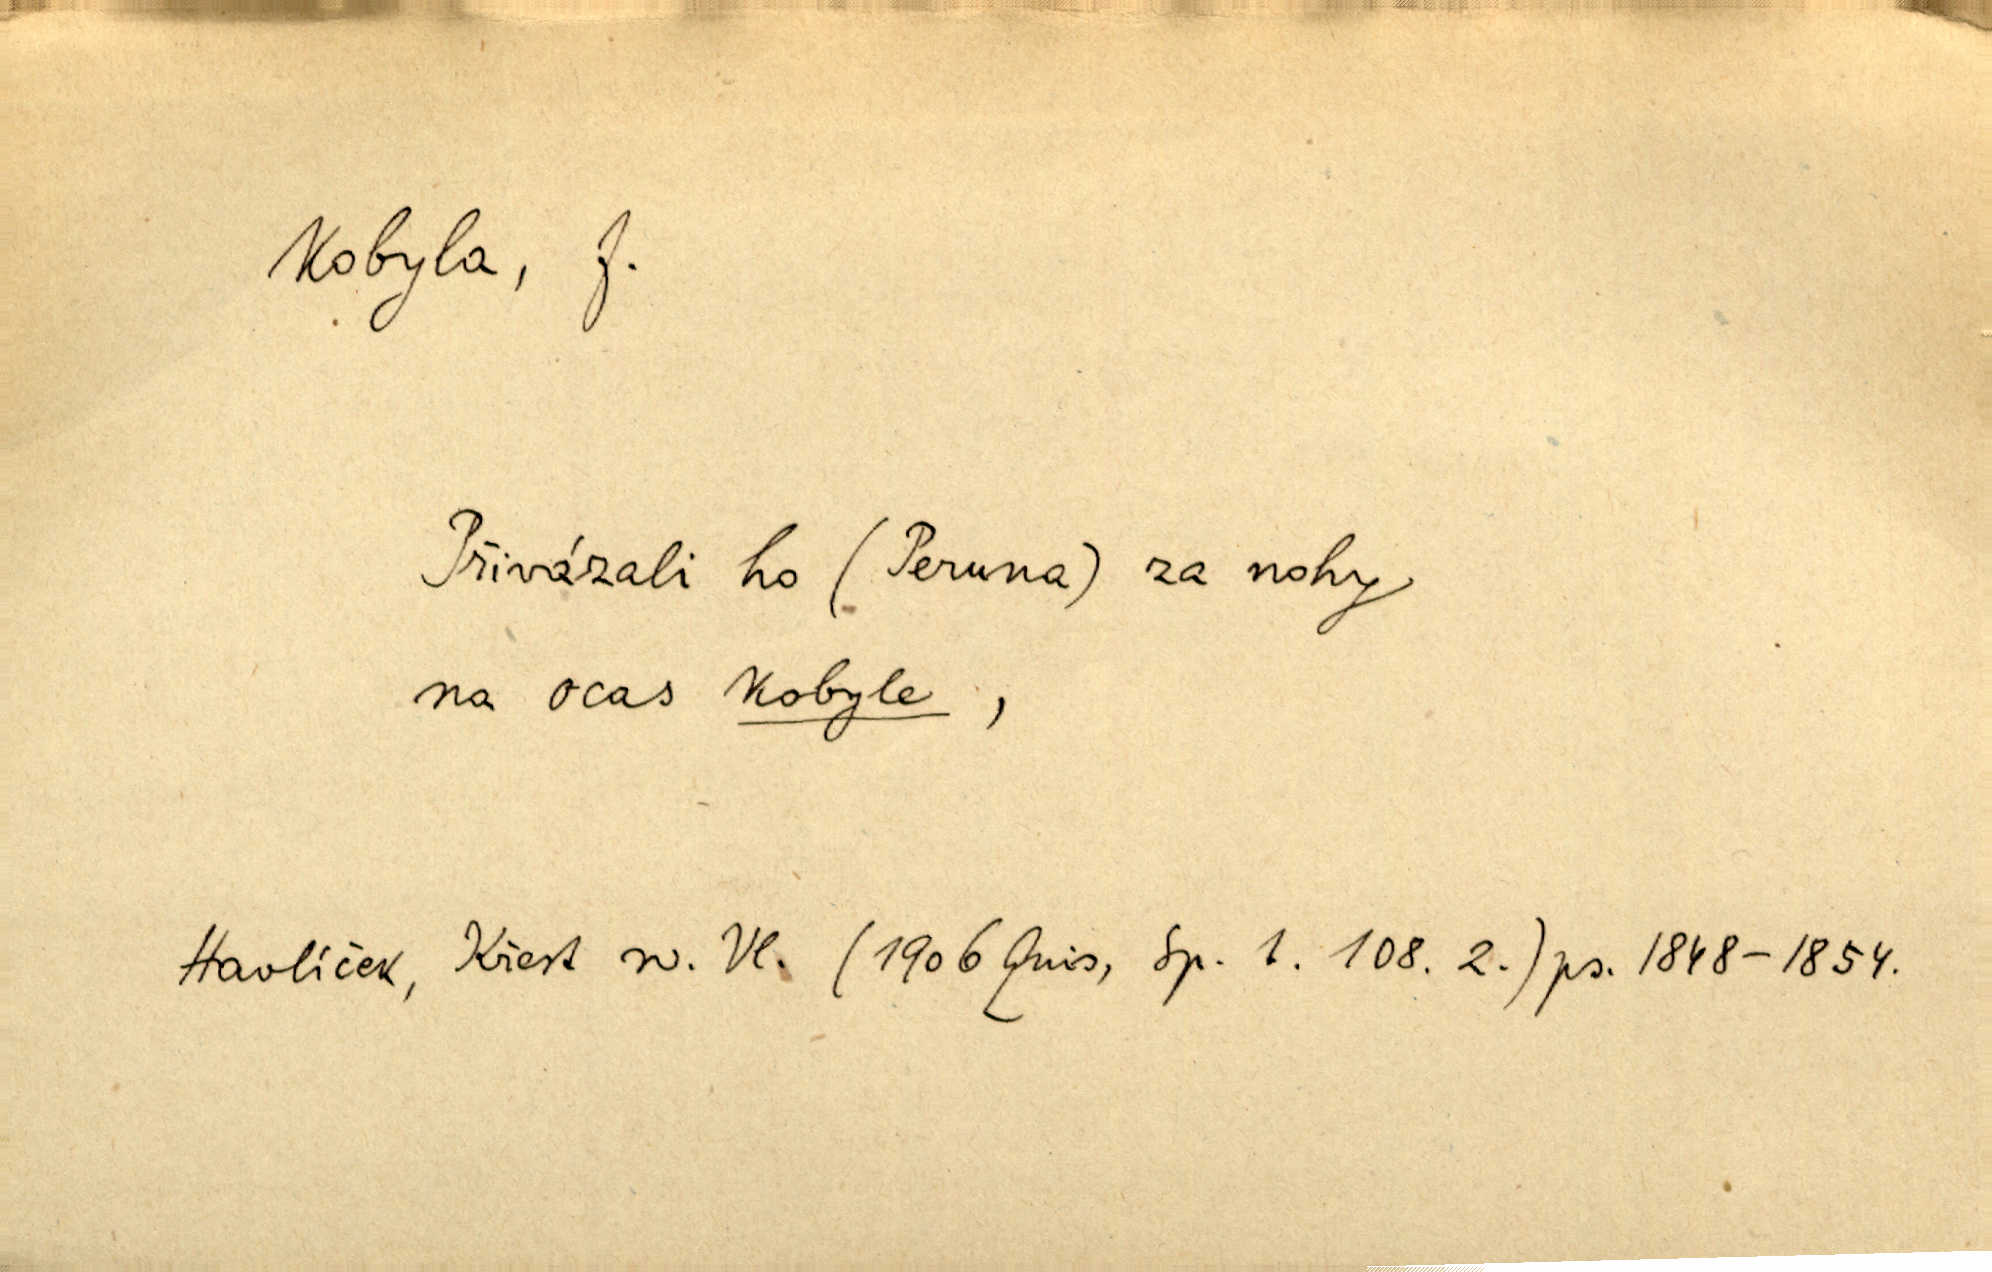 Kobyla, f.
Přivázali ho (Peruna) za nohy
na ocas kobyle,
Havlíček, Křest sv. Vl. (1906 Quis, Sp. 1. 108. 2.) ps. 1848-1854.